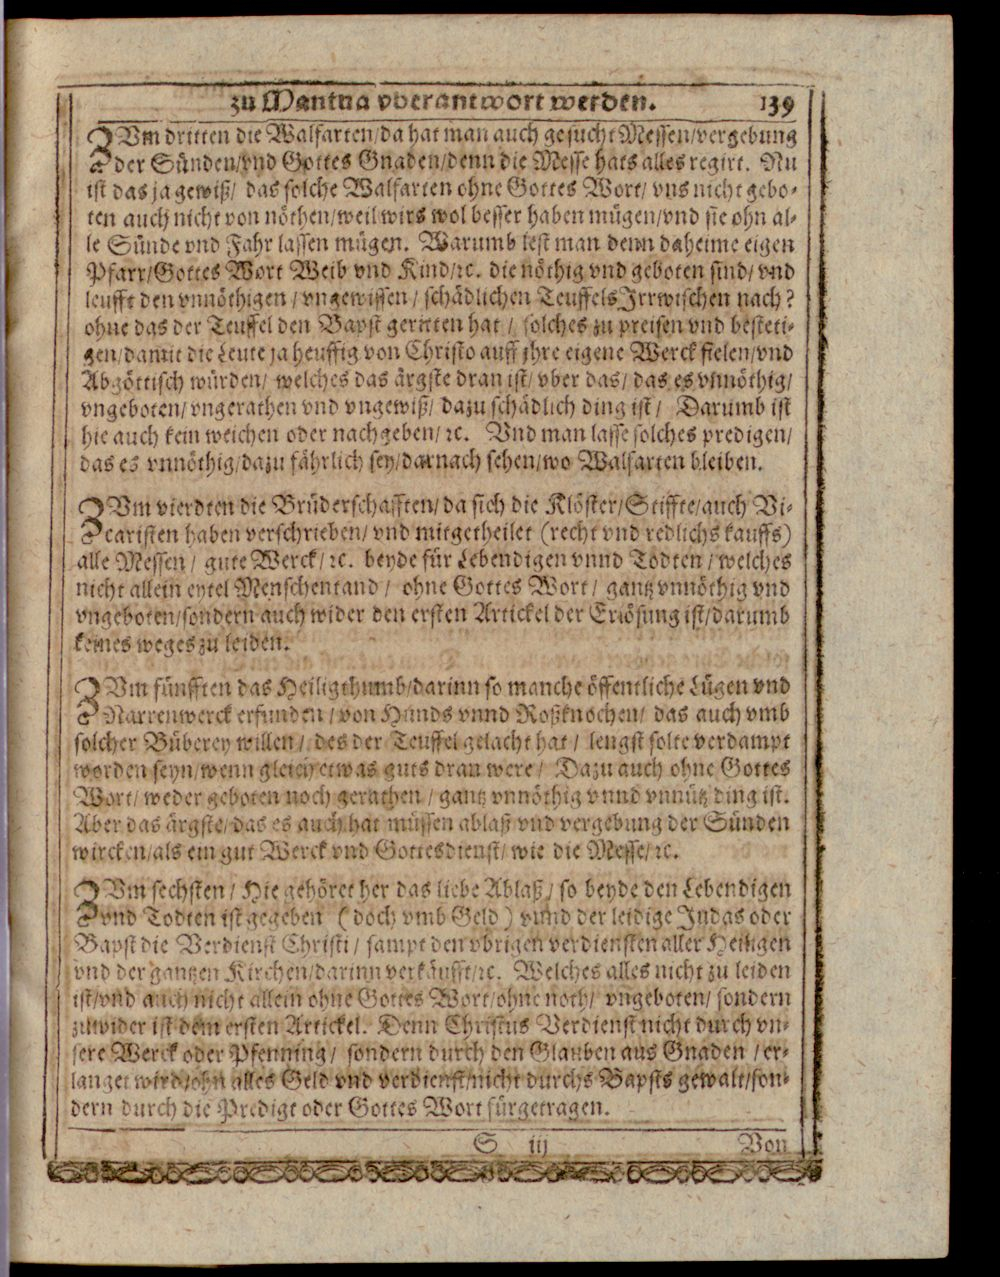 zu Mantua vberantwort werden. 139
ZVm dritten die Walfarten/da hat man auch gesucht Messen/vergebung
der Sünden/vnd Gottes Gnaden/denn die Messe hats alles regirt. Nu
ist das ja gewiß/ das solche Walfarten ohne Gottes Wort/ vns nicht gebo-
ten auch nicht von nöthen/weil wirs wol besser haben mügen/vnd sie ohn al-
le Sünde vnd Fahr lassen mügen. Warumb lest man denn daheime eigen
Pfarr/Gottes Wort Weib vnd Kind/ꝛc. die nöthig vnd geboten sind/ vnd
leufft den vnnöthigen / vngewissen / schädlichen Teuffels Jrrwischen nach?
ohne das der Teuffel den Bapst geritten hat / solches zu preisen vnd besteti-
gen/damit die Leute ja heuffig von Christo auff jhre eigene Werck fielen/vnd
Abgöttisch würden/ welches das ärgste dran ist/ vber das/ das es vnnöthig/
vngeboten/ vngerathen vnd vngewiß/ dazu schädlich ding ist / Darumb ist
hie auch kein weichen oder nachgeben/ ꝛc. Vnd man lasse solches predigen/
das es vnnöthig/dazu fährlich sey/darnach sehen/wo Walfarten bleiben.
ZVm vierdten die Brüderschafften/ da sich die Klöster/Stiffte/auch Vi-
caristen haben verschrieben/ vnd mitgetheilet (recht vnd redlichs kauffs)
alle Messen / gute Werck/ ꝛc. beyde für Lebendigen vnnd Todten / welches
nicht allein eytel Menschentand / ohne Gottes Wort / gantz vnnöthig vnd
vngeboten/sondern auch wider den ersten Artickel der Erlösung ist/darumb
keines weges zu leiden.
ZVm fünfften das Heiligthumb/darinn so manche öffentliche Lügen vnd
Narrenwerck erfunden / von Hunds vnnd Roßknochen/ das auch vmb
solcher Büberey willen / des der Teuffel gelacht hat / lengst solte verdampt
worden seyn/wenn gleich etwas guts dran were / Dazu auch ohne Gottes
Wort/ weder geboten noch gerathen / gantz vnnöthig vnnd vnnütz ding ist.
Aber das ärgste/ das es auch hat müssen ablaß vnd vergebung der Sünden
wircken/als ein gut Werck vnd Gottesdienst/ wie die Messe/ ꝛc.
ZVm sechsten / Hie gehöret her das liebe Ablaß / so beyde den Lebendigen
vnd Todten ist gegeben ( doch vmb Geld ) vnnd der leidige Judas oder
Bapst die Verdienst Christi / sampt den vbrigen verdiensten aller Heiligen
vnd der gantzen Kirchen/darinn verkäufft/ꝛc. Welches alles nicht zu leiden
ist/vnd auch nicht allein ohne Gottes Wort/ohne noth/ vngeboten/ sondern
zuwider ist dem ersten Artickel. Denn Christus Verdienst nicht durch vn-
sere Werck oder Pfenning / sondern durch den Glauben aus Gnaden / er-
langet wird/ohn alles Geld vnd verdienst/nicht durchs Bapsts gewalt/son-
dern durch die Predigt oder Gottes Wort fürgetragen.
S iij Von